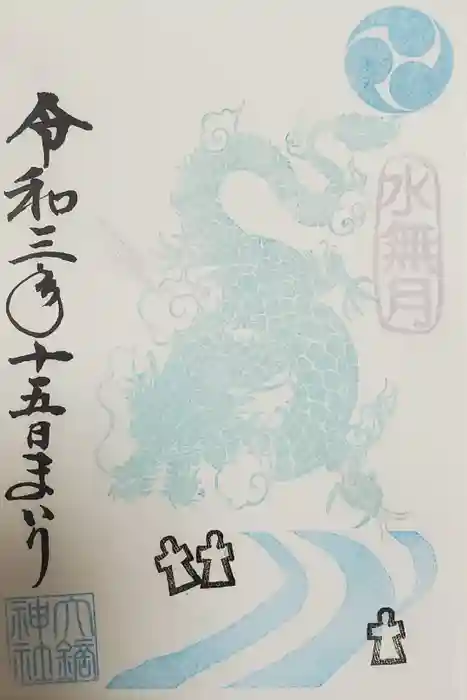 水無月
令和三年十五日まいり
大鏑
神社